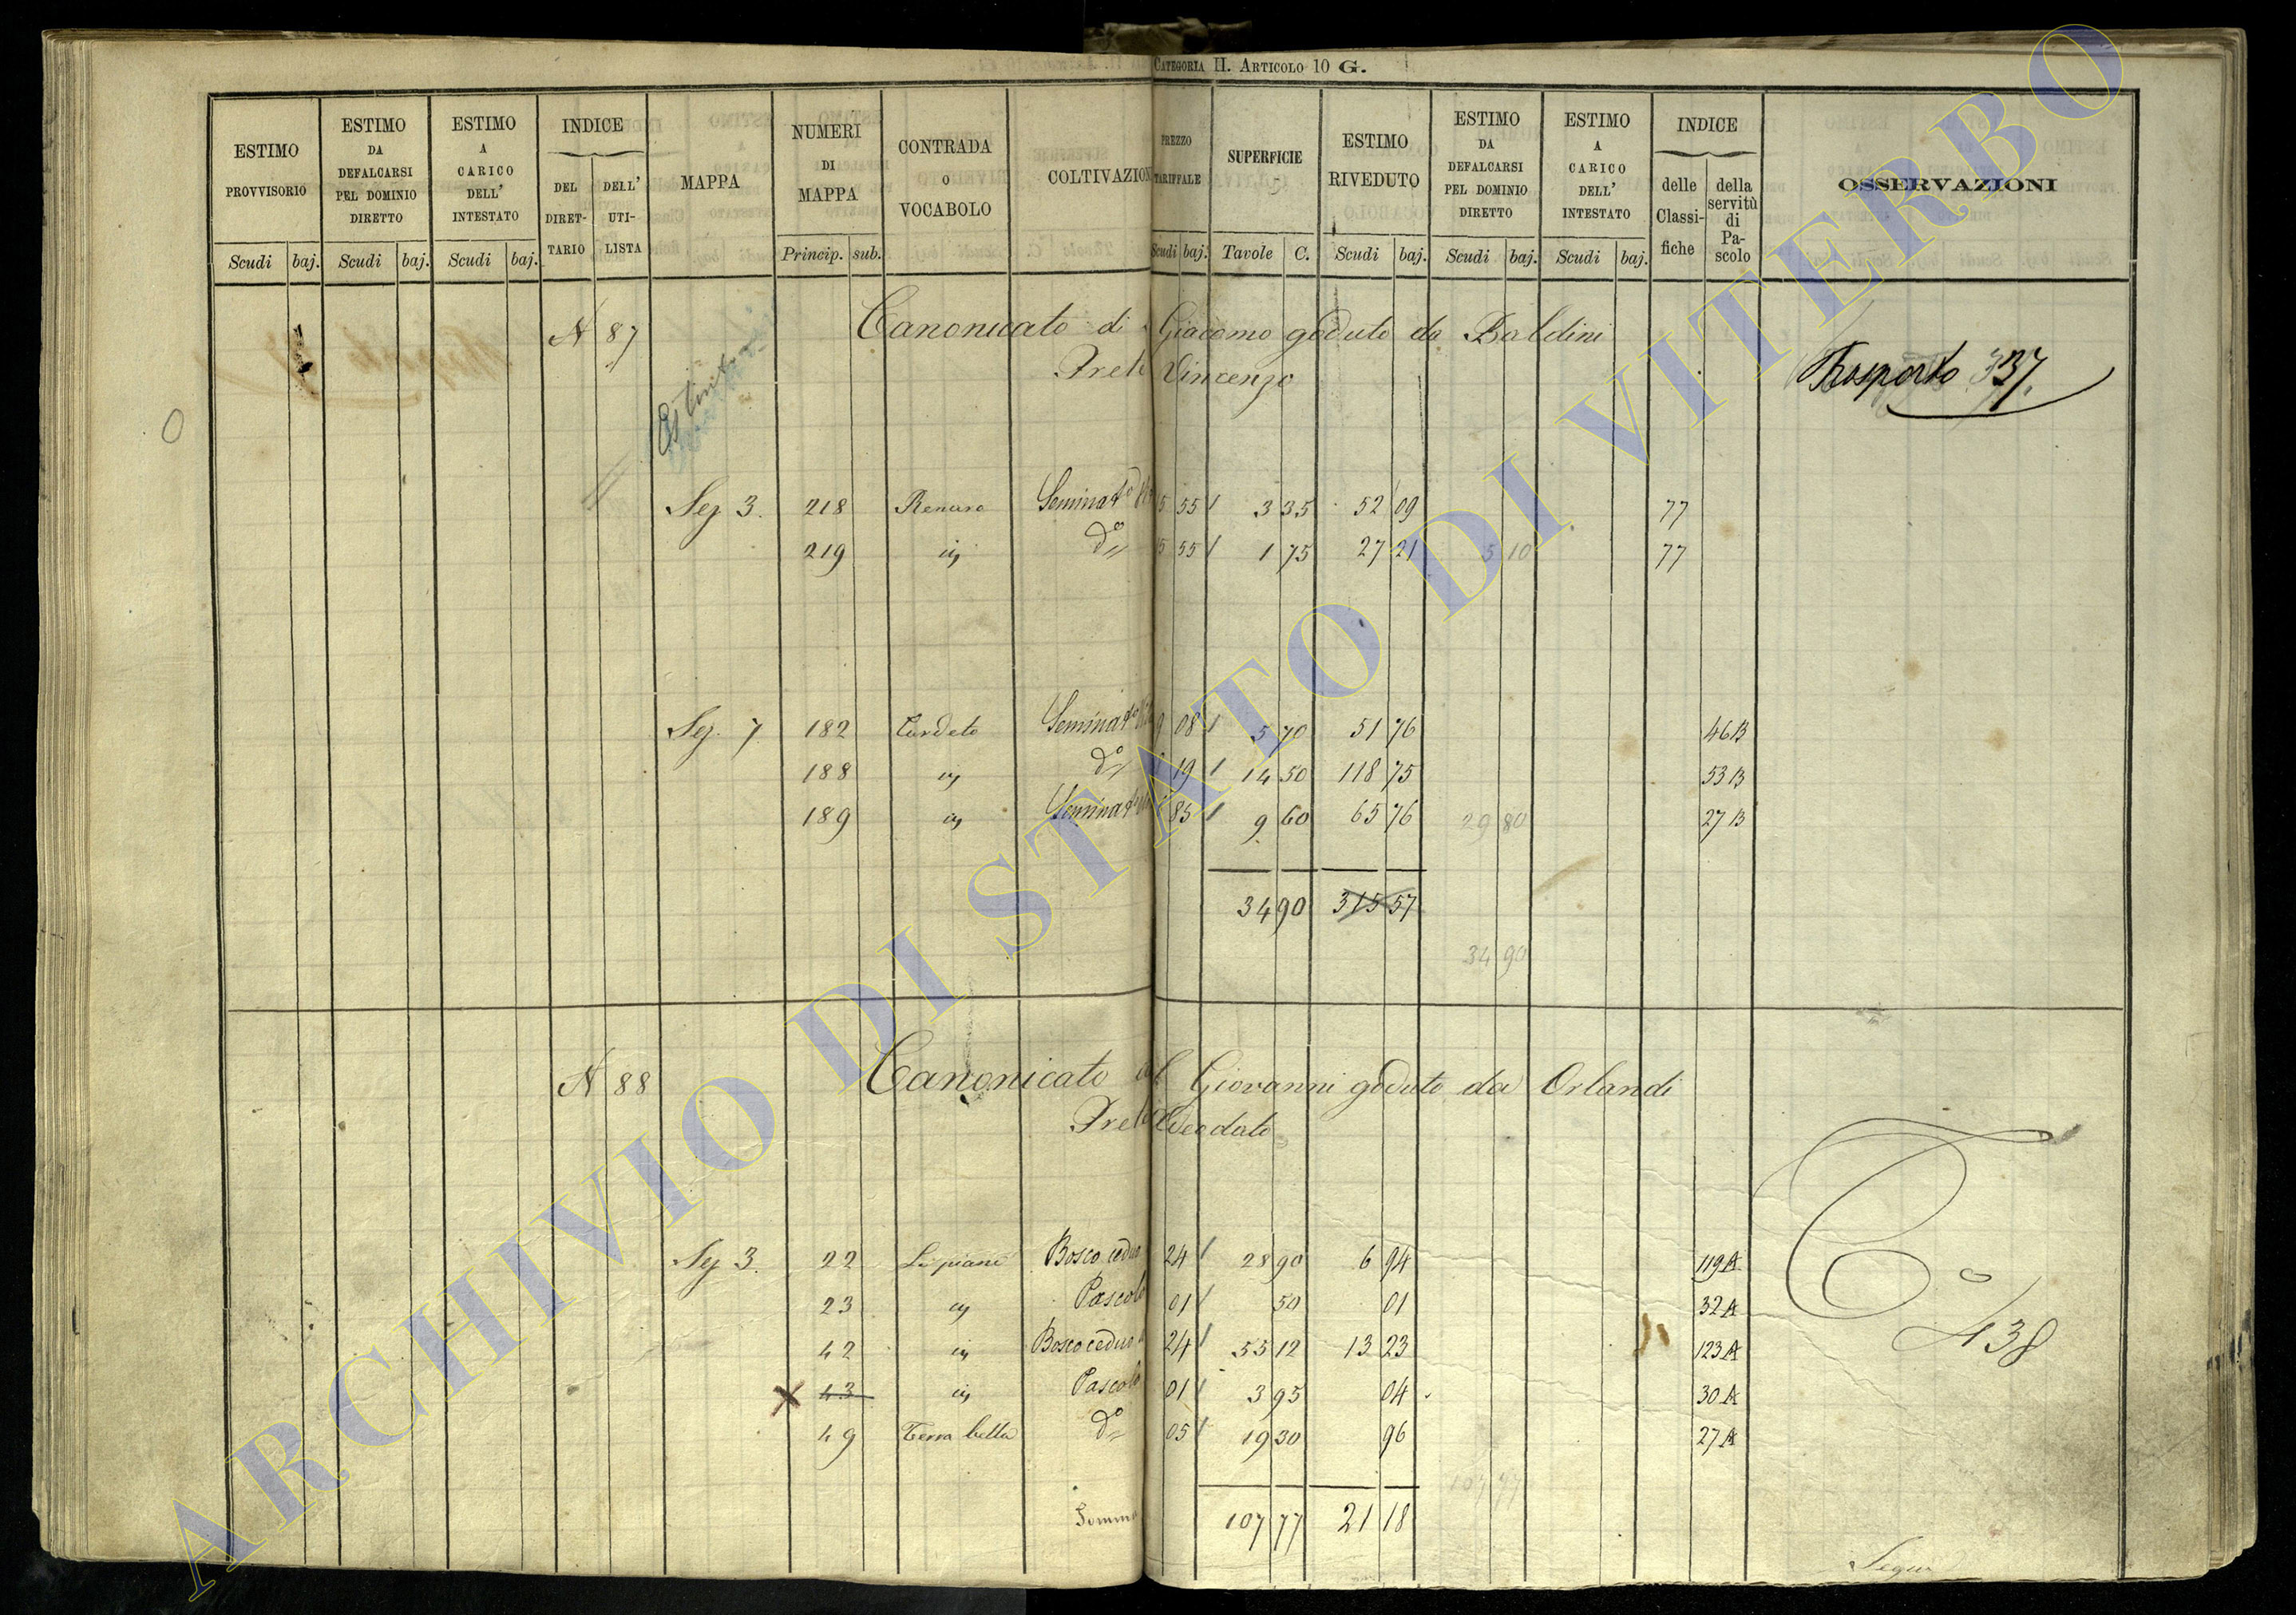 CATEGORIA II. ARTICOLO 10 G.
ESTIMO PROVVISORIO Scudi baj.
ESTIMO DA DEFALCARSI PEL DOMINIO DIRETTO Scudi baj.
ESTIMO A CARICO DELL' INTESTATO Scudi baj.
INDICE DEL DIRET-TARIO DELL' UTI-LISTA
MAPPA
NUMERI DI MAPPA Princip. sub.
CONTRADA O VOCABOLO
COLTIVAZION
PREZZO TARIFFALE Scudi baj.
SUPERFICIE Tavole C.
ESTIMO RIVEDUTO Scudi baj.
ESTIMO DA DEFALCARSI PEL DOMINIO DIRETTO Scudi baj.
ESTIMO A CARICO DELL' INTESTATO Scudi baj.
INDICE delle Classi-fiche della servitù di Pa-scolo
OSSERVAZIONI
N 87 Canonicato di Giacomo goduto da Baldini
Prete Vincenzo
Trasporto 337.
Seg 3. 218 Seminat 5 55 3 35 52 09 77
219 d° 5 55 1 75 27 21 5 10 77
Seg. 7 182 Cardeto Seminat 9 08 5 70 51 76 46 B
188 d° 19 14 50 118 75 53 B
189 Seminat 85 9 60 65 76 29 80 27 B
34 90 315 57
34 90
N 88 Canonicato Giovanni goduto da Orlandi
Prete Deodato
Seg 3. 22 Li piani Bosco ceduo 24 28 90 6 94 119 A
23 Pascolo 01 50 01 32 A
42 Bosco ceduo 24 55 12 13 23 123 A
43 Pascolo 01 3 95 04 30 A
49 Terra bella d° 05 19 30 96 27 A
107 77
Somma 107 77 21 18
438
Segue
ARCHIVIO DI STATO DI VITERBO